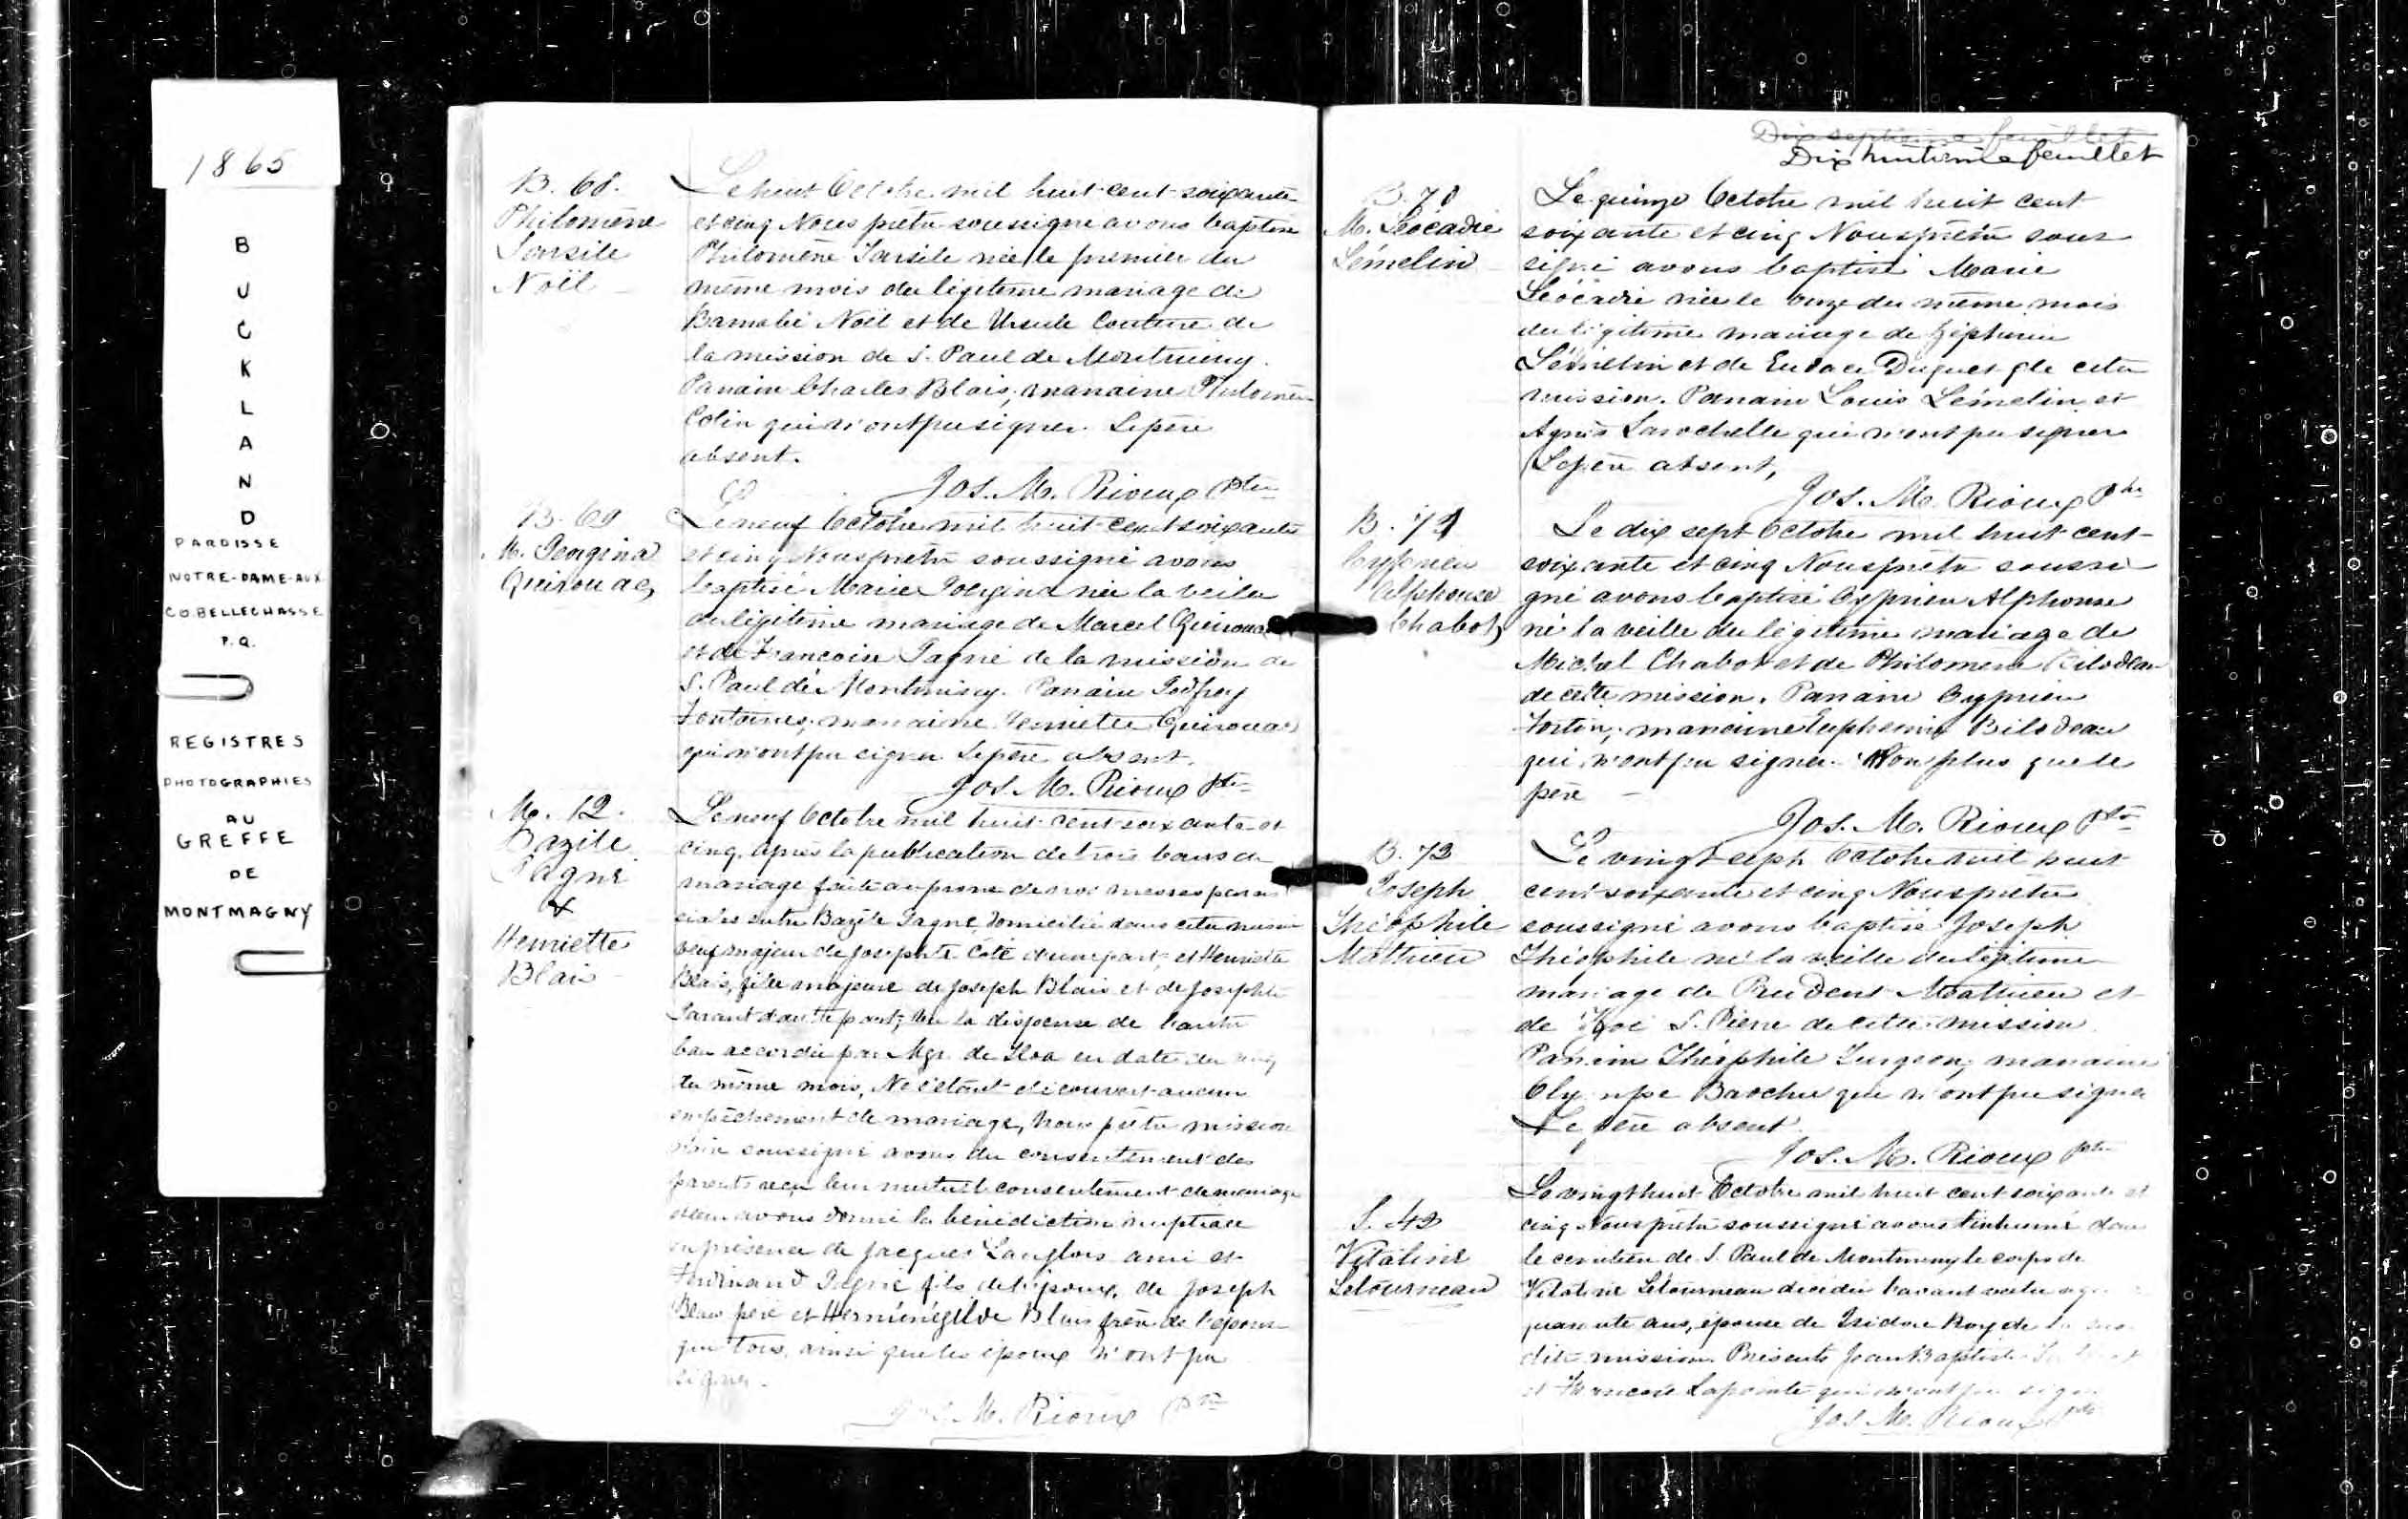 1865
BUCKLAND
PAROISSE
NOTRE-DAME-AUX
CO. BELLECHASSE
P.Q.
REGISTRES
PHOTOGRAPHIES
AU
GREFFE
DE
MONTMAGNY
B. 68.
Philomène
Tarsile
Noël
Le huit Octobre mil huit cent soixante
et cinq Nous prêtre soussigné avons baptisé
Philomène Tarsile née le premier du
même mois du légitime mariage de
Barnabé Noël et de Ursule Couture de
la mission de S. Paul de Montminy.
Parrain Charles Blais, marraine Philomène
Colin qui n'ont pu signer. Le père
absent.
Jos. M. Rioux Ptre
B. 69
M. Georgina
Quirouac
Le neuf Octobre mil huit cent soixante
et cinq Nous prêtre soussigné avons
baptisé Marie Georgina née la veille
du légitime mariage de Marcel Quirouac
et de Francoise Gagné de la mission de
S. Paul de Montminy. Parrain Godfroy
Fontaine, marraine Henriette Quirouac
qui n'ont pu signer Le père absent.
Jos. M. Rioux Ptre
M. 12.
Bazile
Gagné
&
Henriette
Blais
Le neuf Octobre mil huit cent soixante et
cinq, après la publication de trois bans de
mariage faite au prone de nos messes parois
siales entre Bazile Gagné, domicilié dans cette mission
veuf majeur de Josephte Coté d'une part, et Henriette
Blais, fille majeure de Joseph Blais et de Josephte
d'autre part; Vu la dispense de
ban accordée par Mgr. de Tloa en date du cinq
du même mois, Ne s'étant découvert aucun
empêchement de mariage, Nous prêtre mission
naire soussigné avons du consentement des
parents reçu leur mutuel consentement de mariage
et leur avons donné la bénédiction nuptiale
en présence de Jacques Langlois ami et
Ferdinand Gagné fils de l'époux, de Joseph
Blais père et Herménégilde Blais frère de l'épouse
qui tous, ainsi que les époux n'ont pu
signer.
Jos. M. Rioux Ptre
Dix septième feuillet
Dix huitième feuillet
B. 70
M. Léocadie
Lémelin
Le quinze Octobre mil huit cent
soixante et cinq Nous prêtre sous
signé avons baptisé Marie
Léocadie née le onze du même mois
du légitime mariage de Zéphirin
Lémelin et de Duquet de cette
mission. Parrain Louis Lémelin et
Agnès Larochelle qui n'ont pu signer
Le père absent,
Jos. M. Rioux Ptre
B. 71
Cyprien
Alphonse
Chabot
Le dix sept Octobre mil huit cent
soixante et cinq Nous prêtre soussi
gné avons baptisé Cyprien Alphonse
né la veille du légitime mariage de
Michel Chabot et de Philomene Bilodeau
de cette mission. Parrain Cyprien
Fortin, marraine Euphemie Bilodeau
qui n'ont pu signer. Non plus que le
père
Jos. M. Rioux Ptre
B. 72
Joseph
Théophile
Mathieu
Le vingt sept Octobre mil huit
cent soixante et cinq Nous prêtre
soussigné avons baptisé Joseph
Théophile né la veille du légitime
mariage de Prudent Mathieu et
de Zoé S. Pierre de cette mission
Parrain Théophile Turgeon, marraine
Olympe Baochu qui n'ont pu signer
Le père absent
Jos. M. Rioux Ptre
S. 42
Vitaline
Létourneau
Le vingt huit Octobre mil huit cent soixante et
cinq Nous prêtre soussigné avons inhumé dans
le cimetière de S. Paul de Montminy le corps de
Vitaline Létourneau décédée l'avant veille
quarante ans, épouse de Isidore Roy de la
dite mission. Présents Jean Baptiste
et Lapointe qui n'ont pu signer
Jos M. Rioux Ptre